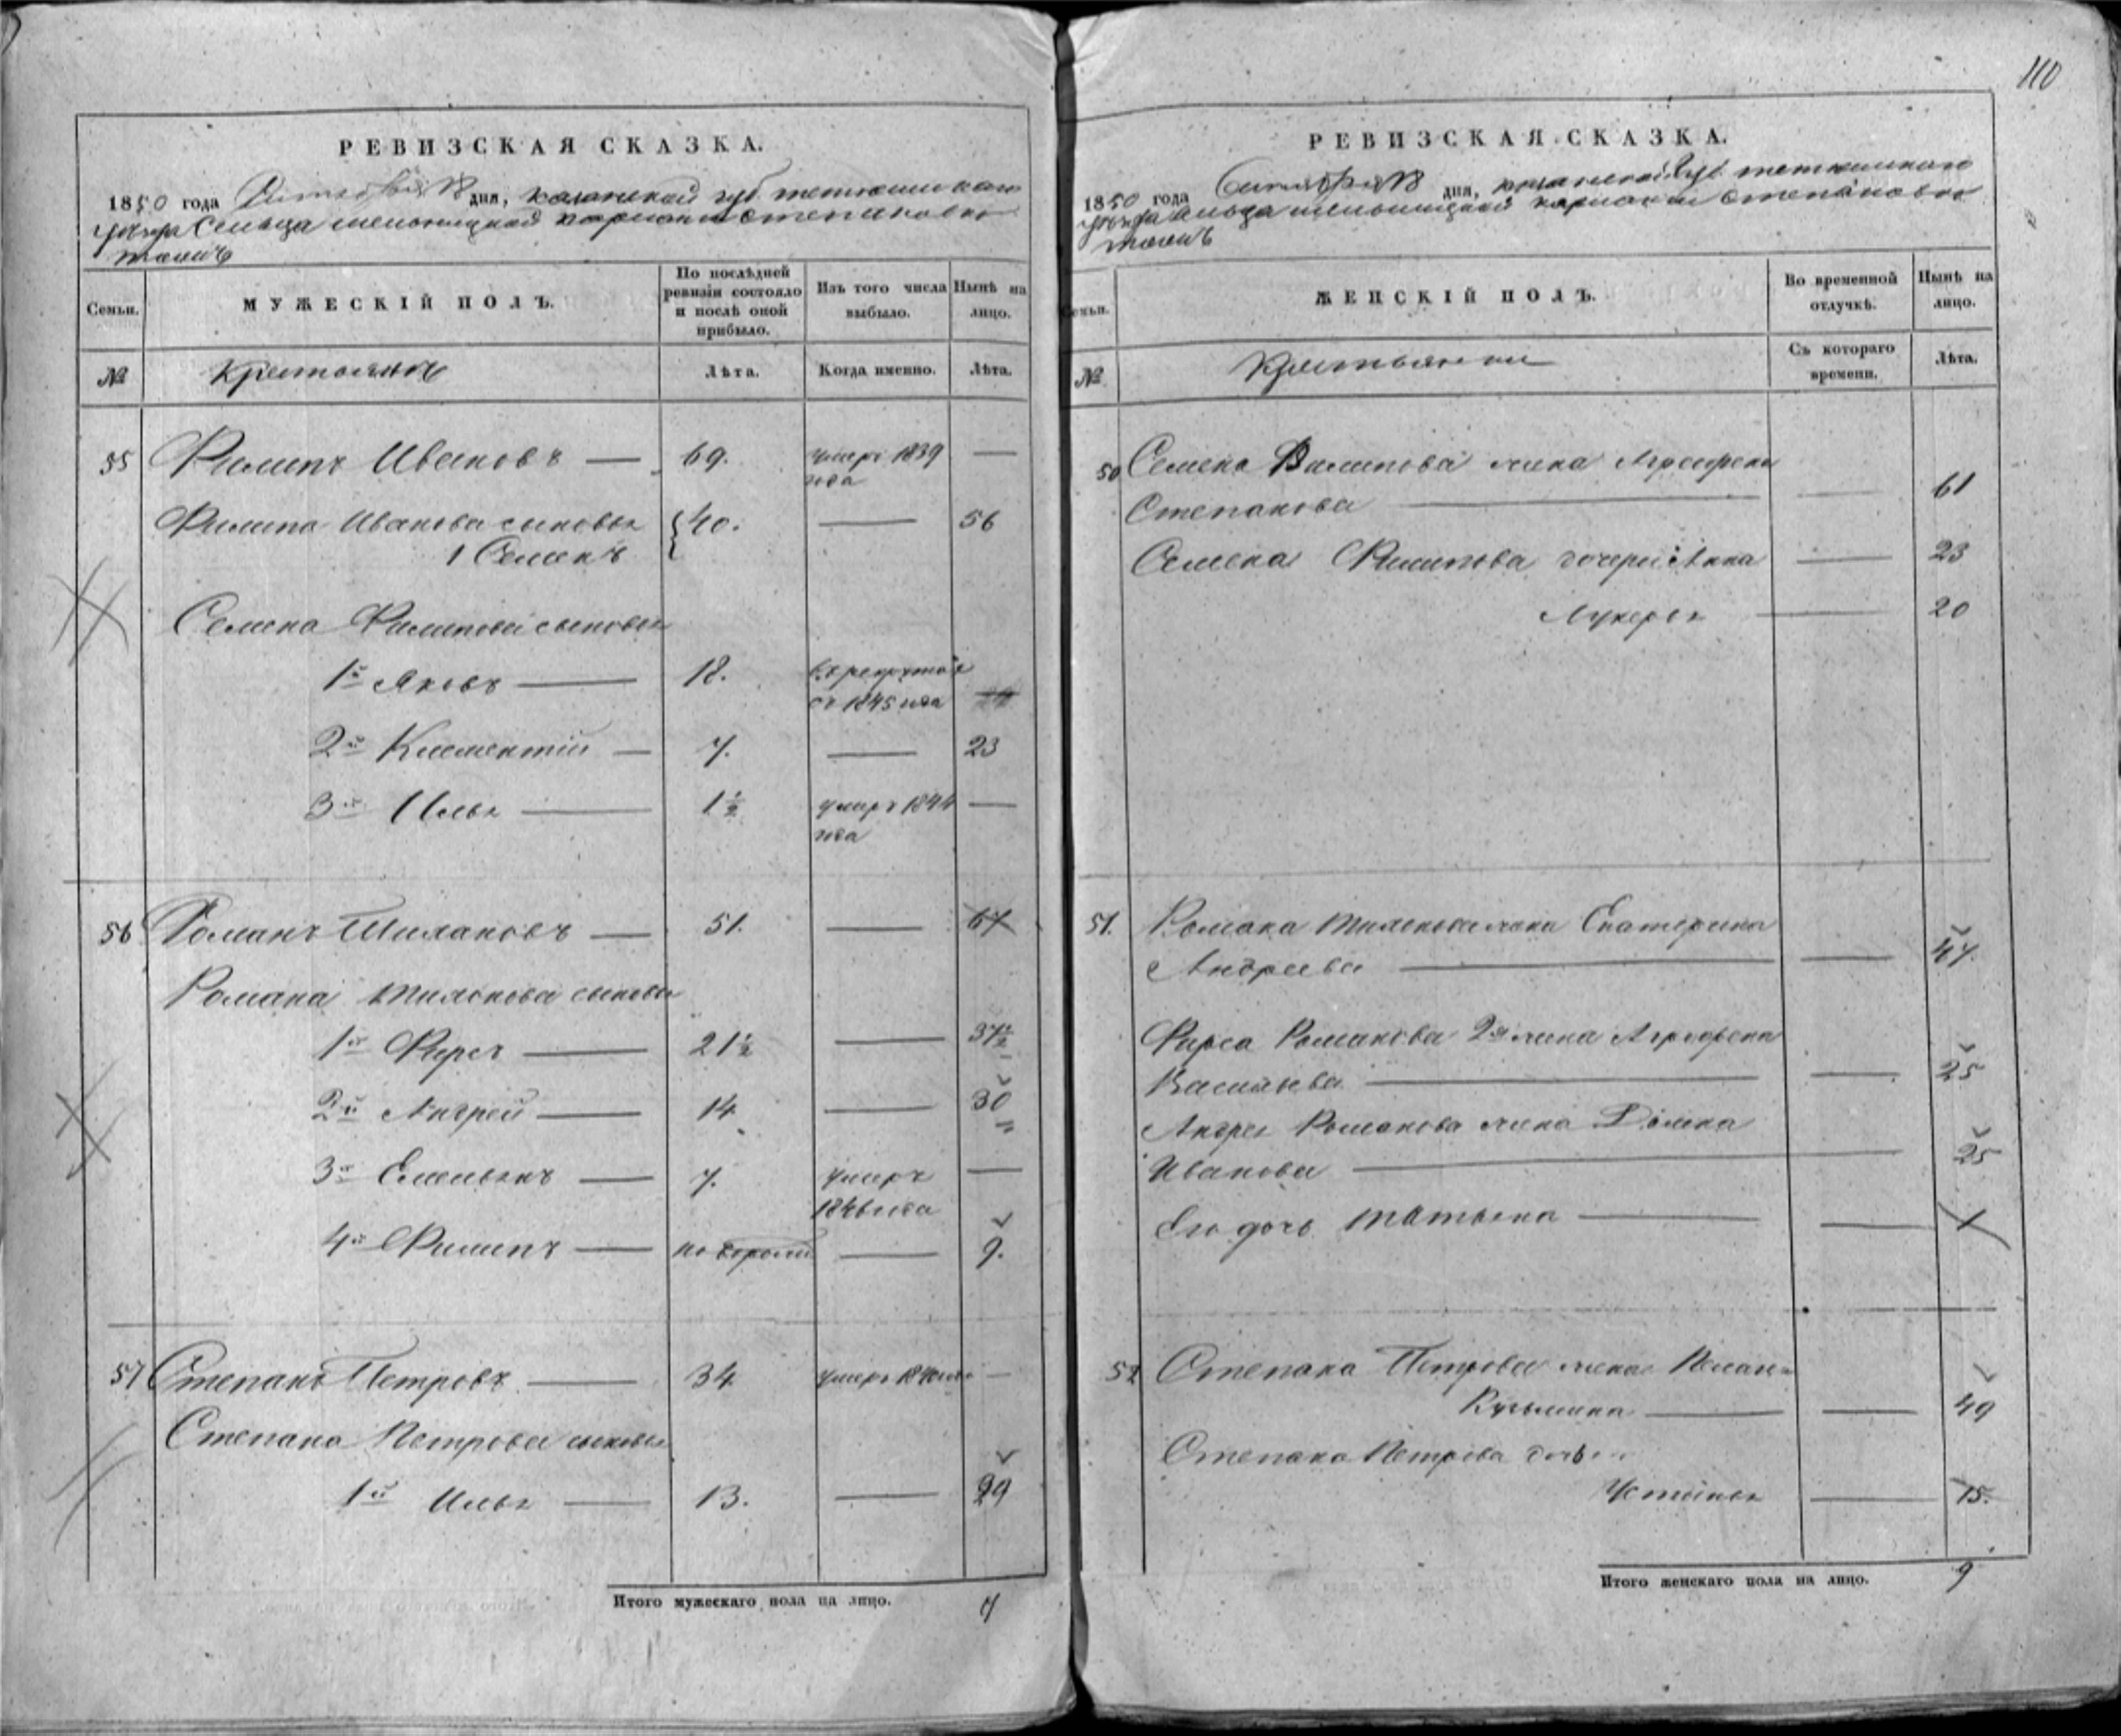 110
РЕВИЗСКАЯ СКАЗКА.
1850 года дня, казанской губ
уезда Сельца
МУЖЕСКІЙ ПОЛЪ.
Семьи.
По послѣдней ревизіи состояло и послѣ оной прибыло.
Изъ того числа выбыло.
Нынѣ на лицо.
№
Крестьяне
Лѣта.
Когда именно.
Лѣта.
55 Филипъ Ивановъ — 69. умеръ 1839 —
года
Филипа Иванова сыновья 40. — 56
1 Семенъ
Семена Филипова сыновья
1й Яковъ — 18. въ рекруты
съ 1845 года
2й Климентий — 7. — 23
3й Илья — 1½ умеръ 1844 —
года
56 Романъ — 51. — 67
Романа сыновья
1й Фирсъ — 21½ — 37½
2й Андрей — 14 — 30
3й Емельянъ — 7. умеръ —
1846 года
4й Филипъ — — 9.
57 Степанъ Петровъ — 34 умеръ —
Степана Петрова сыновья
1й Илья — 13. — 29
Итого мужескаго пола на лицо. 7
РЕВИЗСКАЯ СКАЗКА.
1850 года дня,
уезда сельца
Семьи.
ЖЕНСКІЙ ПОЛЪ.
Во временной отлучкѣ.
Нынѣ на лицо.
№
Крестьянки
Съ котораго времени.
Лѣта.
50 Семена Филипова жена Аграфена
Степанова — — 61
Семена Филипова дочери Анна — 23
Лукерья — 20
51. Романа жена Екатерина
Андреева — — 47
Фирса Романова 2я жена Аграфена
Васильева — — 25
Андрея Романова жена Домна
Иванова — 25
Его дочь Татьяна — — 1
52 Степана Петрова жена
Кузьмина — — 49
Степана Петрова дочь
Устинья — 15.
Итого женскаго пола на лицо. 9